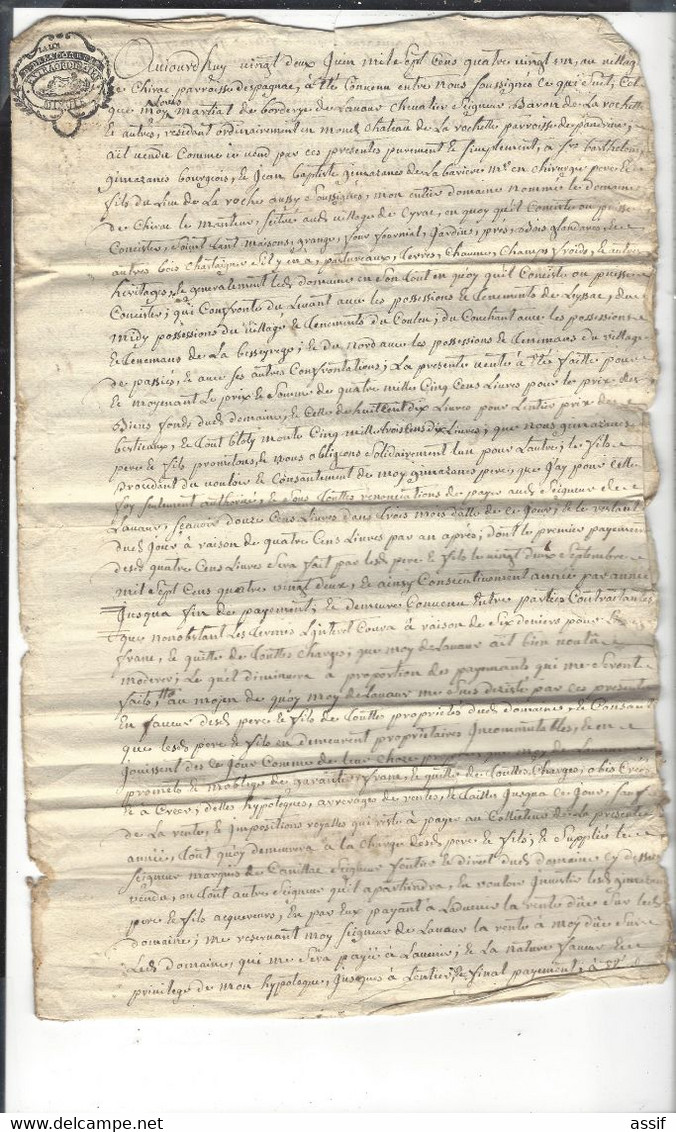 Aujourdhuy vingt deux Juin mil Sept Cens quatre vingt un, au village
de Chirac parroisse despagnac, à été Convenu entre nous Soussignés ce qui Suit, Cest
que moy Louis Martial de borderye de Lauaur Chevalier Seigneur Baron de La rochette
& autres, résidant ordinairement en mon Château de La rochette parroisse de
ait vendu Comme je vend par ces présentes purement & Simplement, a Sr barthelemy
gimazanes bourgeois, & Jean baptiste gimazanes de La bariere Me en Chirurgie pere &
fils du Lieu de La roche aussy Soussignés, mon entier domaine nommé le domaine
de Chirac Le manteur, Scitué audt village de Cyrac, en quoy qu'il Conciste ou puisse
Concister, Soient tant maisons, grange, four fournial, Jardins, prés, bois glandares, &
autres bois Chatagnier S'il y en à, pastureaux, terres, Chaume, Champs froids, & autres
héritages, & generalement ledt domaine en Son tout en quoy qu'il Conciste ou puisse
Concister; qui Confronte du Levant avec les possessions & tenements de Lyssac, du
midy possessions du village & tenements du Coulou; du Couchant avec les possessions
& tenemans de La besseyrege; & du nord avec les possessions & tenemans du village
de passiés, & avec ses autres Confrontations; La presente vente à été faitte pour
& moyenant le prix & Somme de quatre mille Cinq Cens Livres pour le prix des
Biens fonds dudt domaine, & celle de huit cent dix Livres pour L'entier prix des
bestieaux, & tout bloty monte Cinq mille trois cens dix Livres; que nous gimazanes
pere & fils prométons, & nous obligeons Solidairement L'un pour L'autre; le fils
procédant du vouloir & Consantement de moy gimazanes pere, que J'ay pour cette
foy Seulement authorisé, & Sous touttes renonciations de payer audt Seigneur de
Lauaur, Sçavoir douze Cens Livres dans trois mois datte de ce Jour; & le restant
dudt Jour à raison de quatre Cens Livres par an après; dont le premier payement
desdt quatre Cens Livres Sera fait par lesdt pere & fils le vingt deux Septembre
mil Sept Cens quatre vingt deux, & ainsy Consecutivement année par année
Jusqua fin de payement, & demeure Convenu entre parties Contractantes
que nonobstant Les termes L'interet Courra à raison de Six deniers pour
franc, & quitte de touttes Charges; que moy de Lauaur ait bien voulu
moderer; Le quel diminuera à proportion des payemants qui me Seront
faits, au moyen de quoy moy de Lauaur me Suis desisté par ces present
En faveur desdt pere & fils de touttes propriétés dudt domaine, & Consant
que lesdt pere & fils en demeurent propriétaires Incommutables, & en
Jouissent dès ce Jour Comme de leur Chose propre, que moy de La
promets & m'oblige de garantir, franc, & quitte de touttes Charges, obis Créés
& à Créer, dettes hypoteques, arrerages de rentes, & tailles Jusqua ce Jour, Sauf
de La rente, & impositions royalles qui reste à payer au Collecteur de La presente
année, tout quoy demeurera à la Charge desdt pere & fils; & Supplies &
Seigneur marquis de Canillac Seigneur foncier & direct dudt domaine cy dessus
vendu, ou tout autre Seigneur qu'il apartiendra, de vouloir Investir lesdt gimazanes
pere & fils acquereurs, En par Eux payant à Ladvenir la rente düe Sur ledt
domaine; me reservant moy Seigneur de Lauaur la rente à moy düe Sur
Ledt domaine, qui me Sera payée à Lavenir; & La nature faveur &
privilege de mon hypoteque, Jusques à L'entier, & final payement;